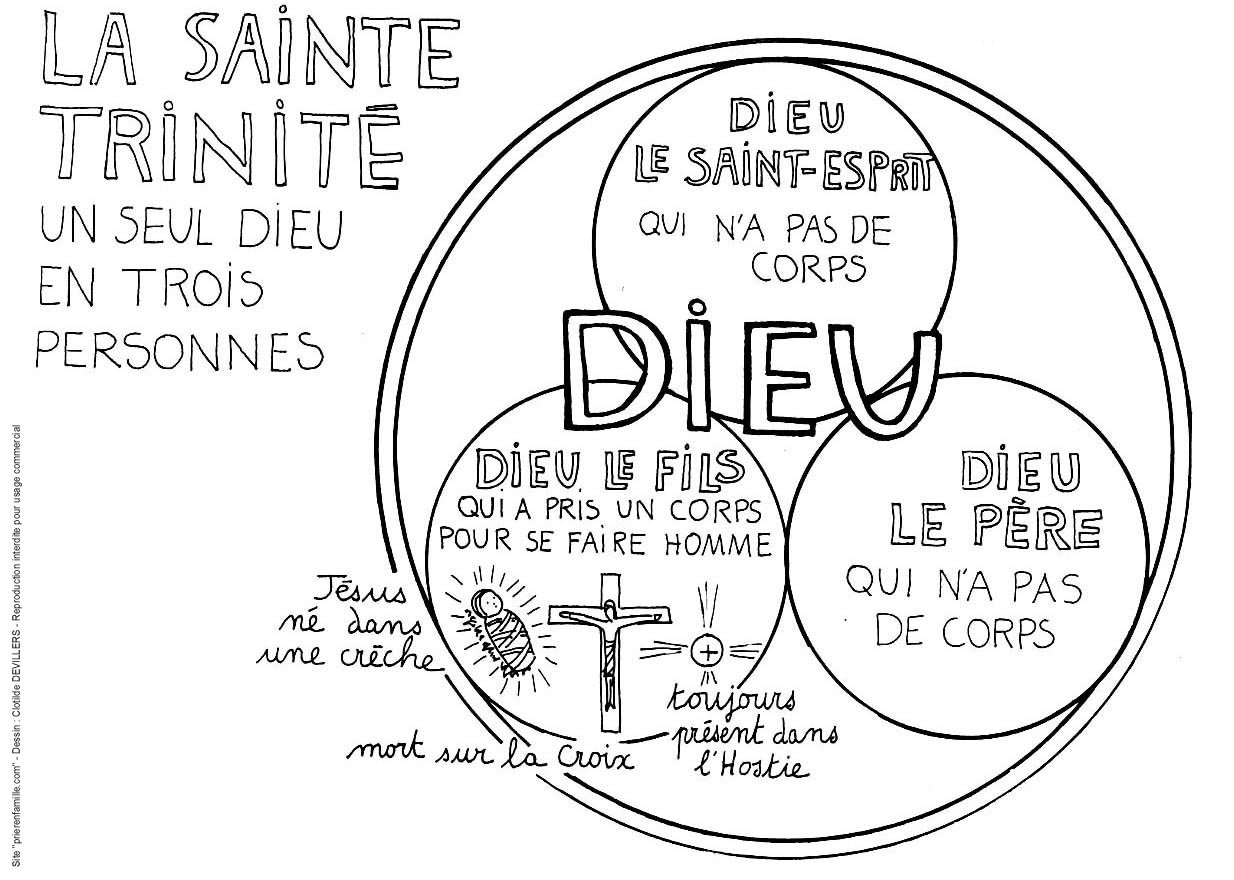 LA SAINTE
TRINITÉ
UN SEUL DIEU
EN TROIS
PERSONNES
DIEU
LE SAINT-ESPRIT
QUI N'A PAS DE
CORPS
DIEU
DIEU LE FILS
QUI A PRIS UN CORPS
POUR SE FAIRE HOMME
Jésus
né dans
une crèche
mort sur la Croix
toujours
présent dans
l'Hostie
DIEU
LE PÈRE
QUI N'A PAS
DE CORPS
Site "prierenfamille.com" - Dessin : Clotilde DEVILLERS - Reproduction interdite pour usage commercial